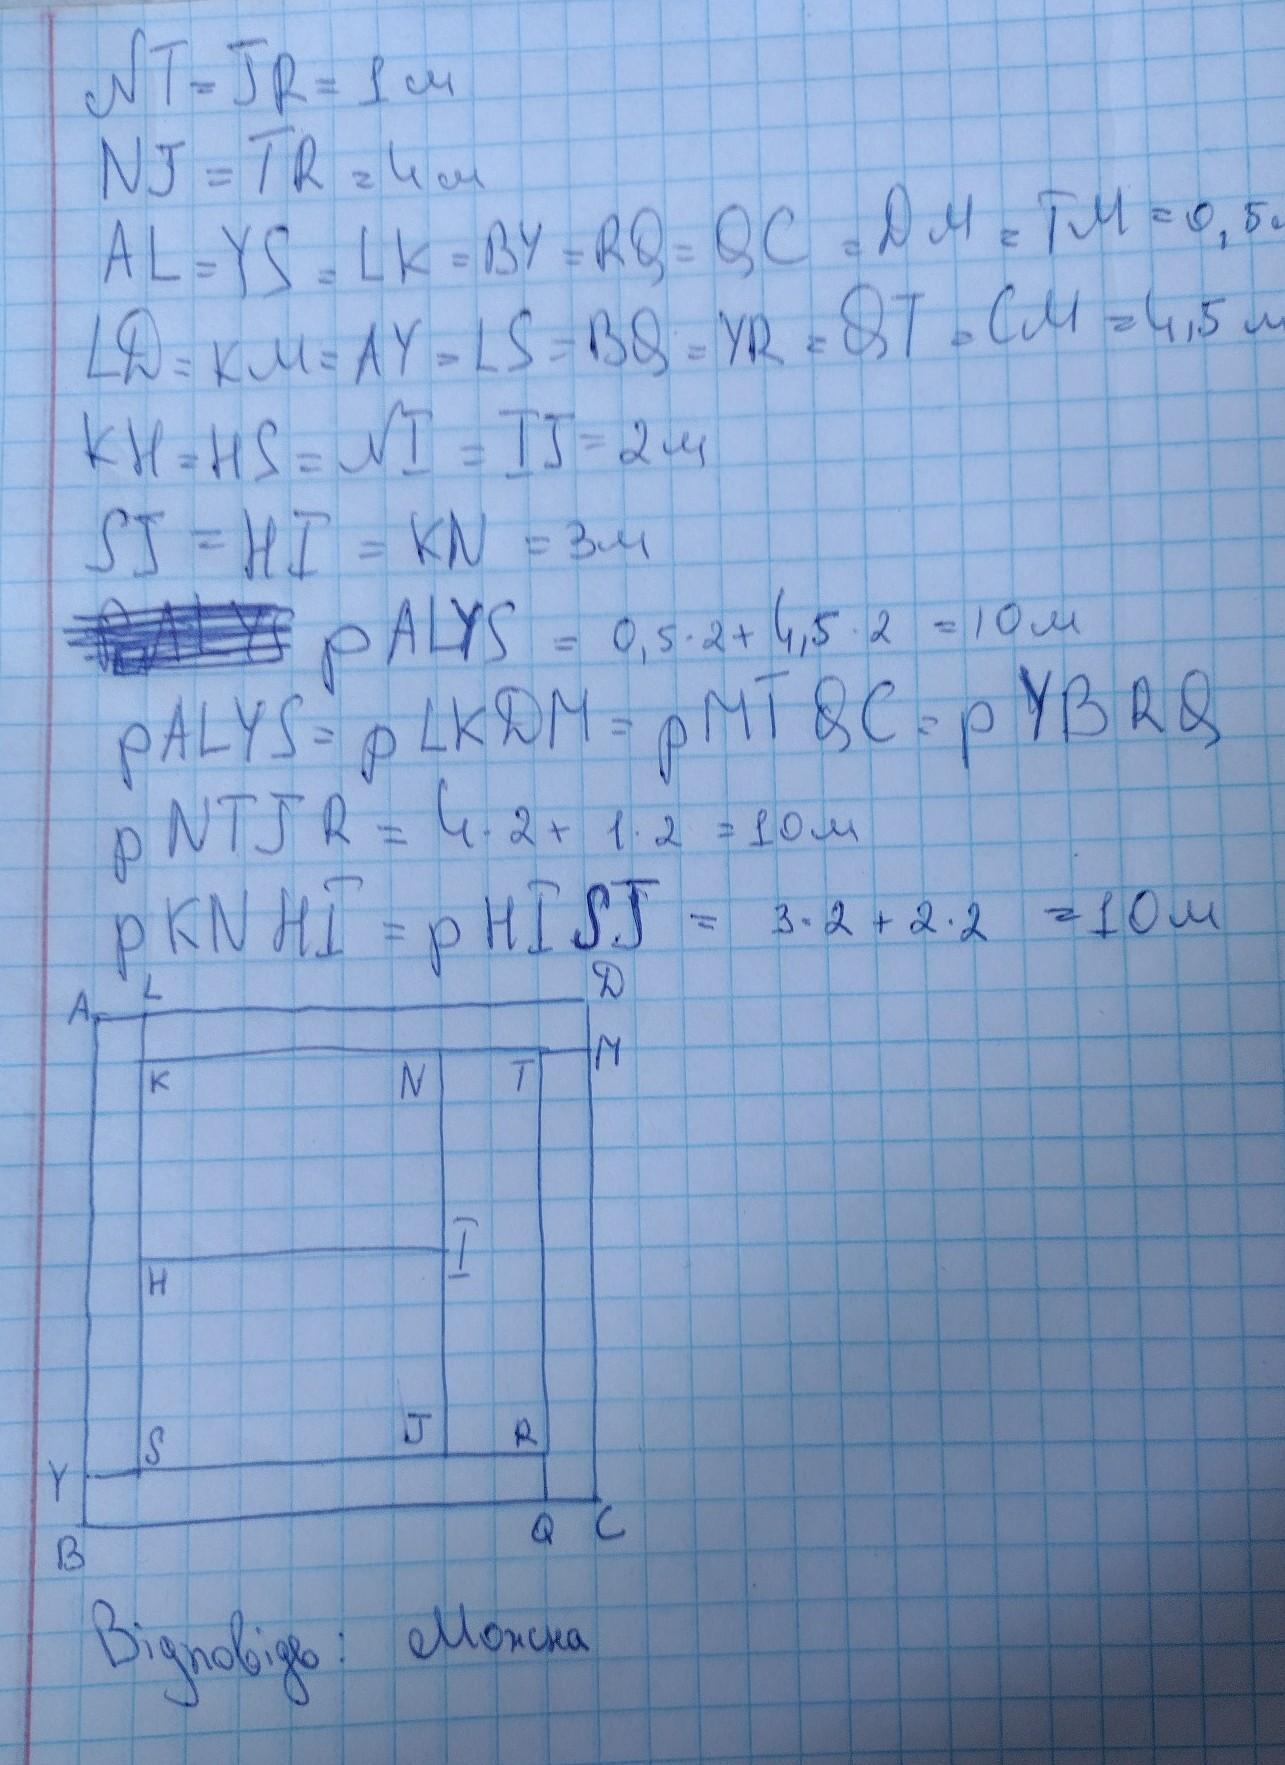 NT = JR = 1 м
NJ = TR = 4 м
AL = YS = LK = BY = RQ = QC = DM = TM = 0,5
LD = KM = AY = LS = BQ = YR = QT = CM = 4,5 м
KH = HS = NI = IJ = 2 м
SJ = HI = KN = 3 м
pALYS = 0,5·2 + 4,5·2 = 10 м
pALYS = pLKDM = pMTQC = pYBRQ
pNTJR = 4·2 + 1·2 = 10 м
pKNHI = pHISJ = 3·2 + 2·2 = 10 м
A L D
K N T M
H I
S J R
Y
B Q C
Відповідь: Можна